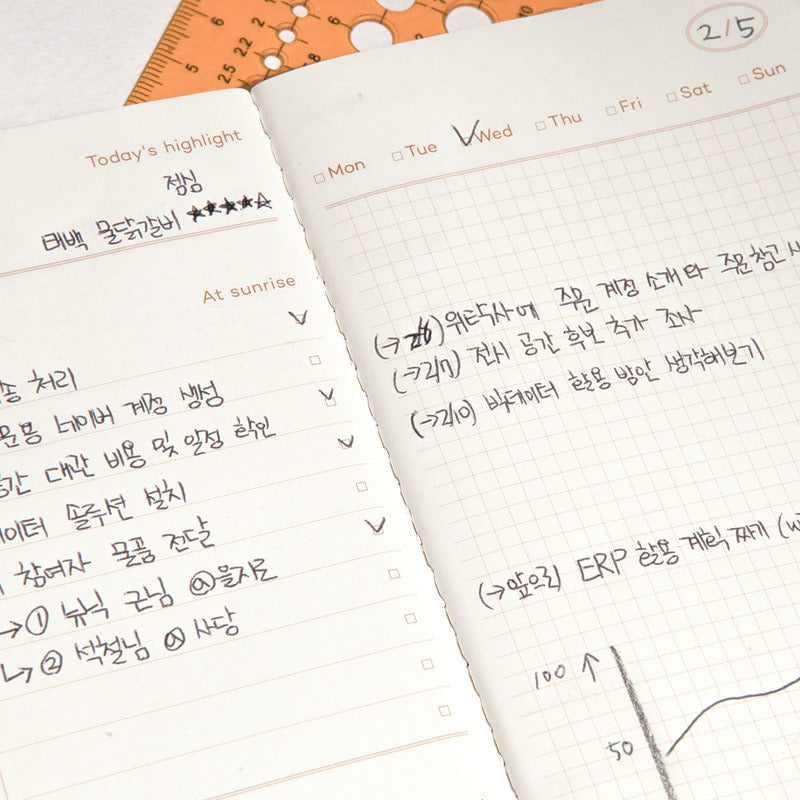 6
5
2.5 2.2 2
6
Today's highlight
점심
태백 물닭갈비 ★★★★☆
At sunrise
송 처리
문몽 네이버 계정 생성
공간 대관 비용 및 일정 확인
데이터 솔루션 설치
참여자 물품 전달
→① 뉴식 근님 @을지로
↳② 석철님 @ 사당
2/5
Mon Tue Wed Thu Fri Sat Sun
(→2/6) 위탁사에 주문 계정 소개와 주문창고
(→2/7) 전시 공간 후보 추가 조사
(→2/10) 빅데이터 활용 방안 생각해보기
(→앞으리 ERP 활용 계획 짜기 (
100 ↑
50